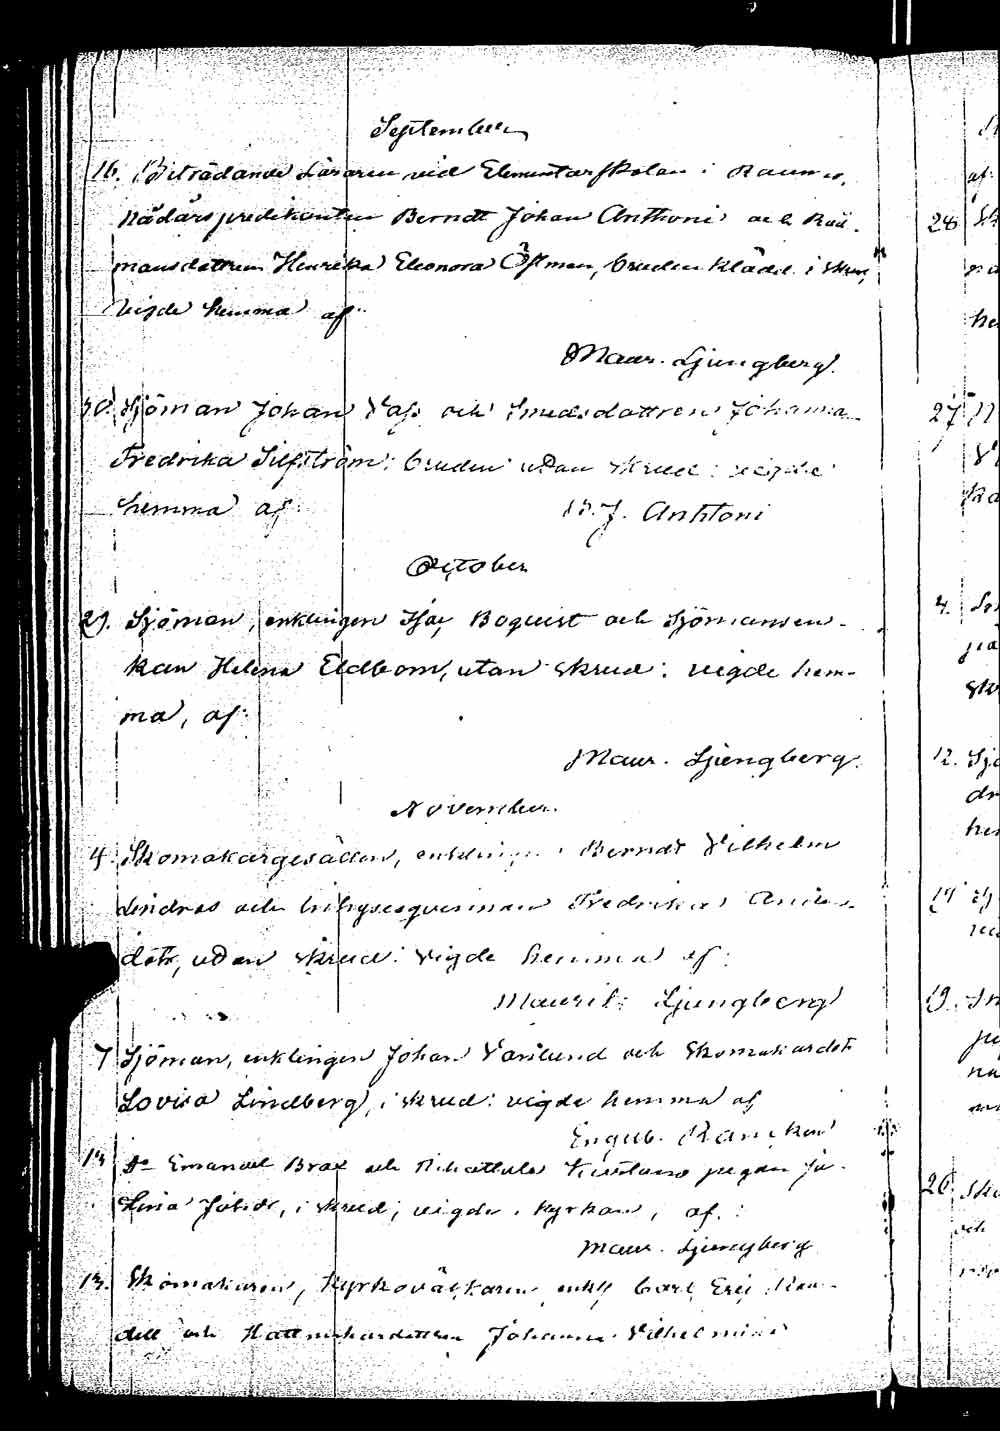 September
16. Biträdande Läraren vid Elementarskolan i Raumo,
Nådårspredikanten Berndt Johan Anthoni och Råd-
mansdottren Henrika Eleonora Östman, bruden klädd i skrud,
vigde hemma af:
Maur. Ljungberg.
30. Sjöman Johan Vass och Smedsdottren Johanna
Fredrika Silfström; bruden utan skrud: vigde
hemma af
B. J. Anthoni
October
29. Sjöman, enklingen Isac Boquist och Sjömansen-
kan Helena Eldbom, utan skrud: vigde hem-
ma, af:
Maur. Ljungberg.
November.
4. Skomakargesällen, enklingen Berndt Vilhelm
Lindros och inhysesqvinnan Fredrika Anders-
dotr, utan skrud: vigde hemma af:
Maurit: Ljungberg
7 Sjöman, enklingen Johan Varilund och Skomakardotr
Lovisa Lindberg, i skrud: vigde hemma af
Engelb. Rancken
13 Do Emanuel Brax och pigan Ju-
lina Johdr, i skrud; vigde i kyrkan, af:
Maur. Ljungberg
13. Skomakaren, Kyrkoväktaren enkl. Carl Eric
dell och Hattmakardottren Johanna Vilhelmina
28
27
4.
12. Sjö
19
19.
26